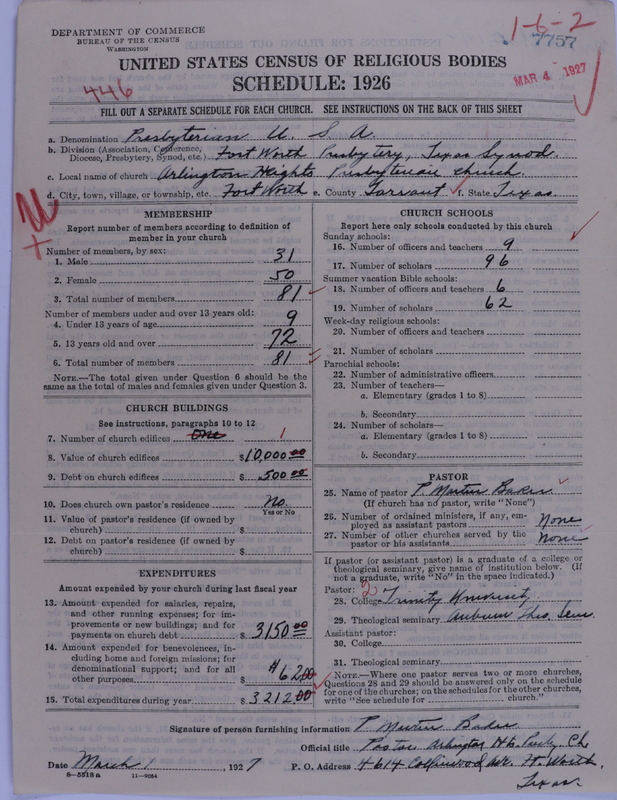 DEPARTMENT OF COMMERCE
BUREAU OF THE CENSUS
WASHINGTON
1-6-2
7757
UNITED STATES CENSUS OF RELIGIOUS BODIES
SCHEDULE: 1926
MAR 4 1927
446
FILL OUT A SEPARATE SCHEDULE FOR EACH CHURCH. SEE INSTRUCTIONS ON THE BACK OF THIS SHEET
a. Denomination Presbyterian U. S. A.
b. Division (Association, Conference, Diocese, Presbytery, Synod, etc.) Fort Worth Presbytery, Texas Synod.
c. Local name of church Arlington Heights Presbyterian Church.
d. City, town, village, or township, etc. Fort Worth e. County Tarrant f. State Texas.
MEMBERSHIP
Report number of members according to definition of member in your church
Number of members, by sex:
1. Male 31
2. Female 50
3. Total number of members 81
Number of members under and over 13 years old:
4. Under 13 years of age 9
5. 13 years old and over 72
6. Total number of members 81
NOTE.—The total given under Question 6 should be the same as the total of males and females given under Question 3.
CHURCH BUILDINGS
See instructions, paragraphs 10 to 12
7. Number of church edifices One 1
8. Value of church edifices $10,000.00
9. Debt on church edifices $500.00
10. Does church own pastor's residence No.
Yes or No
11. Value of pastor's residence (if owned by church) $
12. Debt on pastor's residence (if owned by church) $
EXPENDITURES
Amount expended by your church during last fiscal year
13. Amount expended for salaries, repairs, and other running expenses; for improvements or new buildings; and for payments on church debt $3150.00
14. Amount expended for benevolences, including home and foreign missions; for denominational support; and for all other purposes $ $62.00
15. Total expenditures during year $3212.00
CHURCH SCHOOLS
Report here only schools conducted by this church
Sunday schools:
16. Number of officers and teachers 9
17. Number of scholars 96
Summer vacation Bible schools:
18. Number of officers and teachers 6
19. Number of scholars 62
Week-day religious schools:
20. Number of officers and teachers
21. Number of scholars
Parochial schools:
22. Number of administrative officers
23. Number of teachers—
a. Elementary (grades 1 to 8)
b. Secondary
24. Number of scholars—
a. Elementary (grades 1 to 8)
b. Secondary
PASTOR
25. Name of pastor P. Martin Baker
(If church has no pastor, write "None")
26. Number of ordained ministers, if any, employed as assistant pastors None
27. Number of other churches served by the pastor or his assistants None
If pastor (or assistant pastor) is a graduate of a college or theological seminary, give name of institution below. (If not a graduate, write "No" in the space indicated.)
Pastor: 2
28. College Trinity University
29. Theological seminary Auburn Theo. Sem.
Assistant pastor:
30. College
31. Theological seminary
NOTE.—Where one pastor serves two or more churches, Questions 28 and 29 should be answered only on the schedule for one of the churches; on the schedules for the other churches, write "See schedule for church."
Signature of person furnishing information P. Martin Baker
Official title Pastor Arlington Hts. Presby. Ch.
Date March 1, 1927 P. O. Address 4614 Collinwood Ave. Ft. Worth, Texas.
8-5518a 11-9064